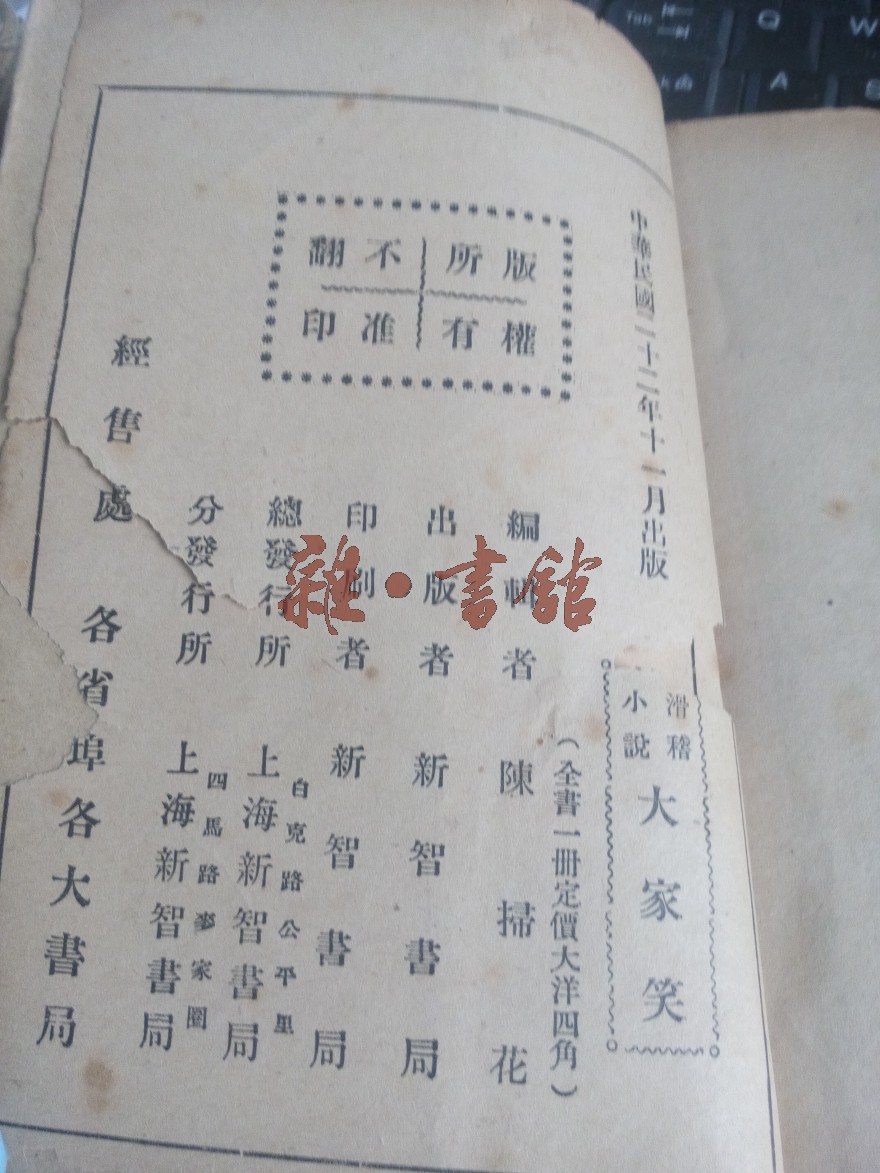 中華民國二十二年十一月出版
滑稽
小說
大家笑
(全書一冊定價大洋四角)
編輯者 陳掃花
出版者 新智書局
印刷者 新智書局
總發行所 上海新智書局
白克路公平里
分發行所 上海新智書局
四馬路麥家圈
經售處 各省埠各大書局
版權
所有
不准
翻印
雜·書舘
Tab
Q
W
A